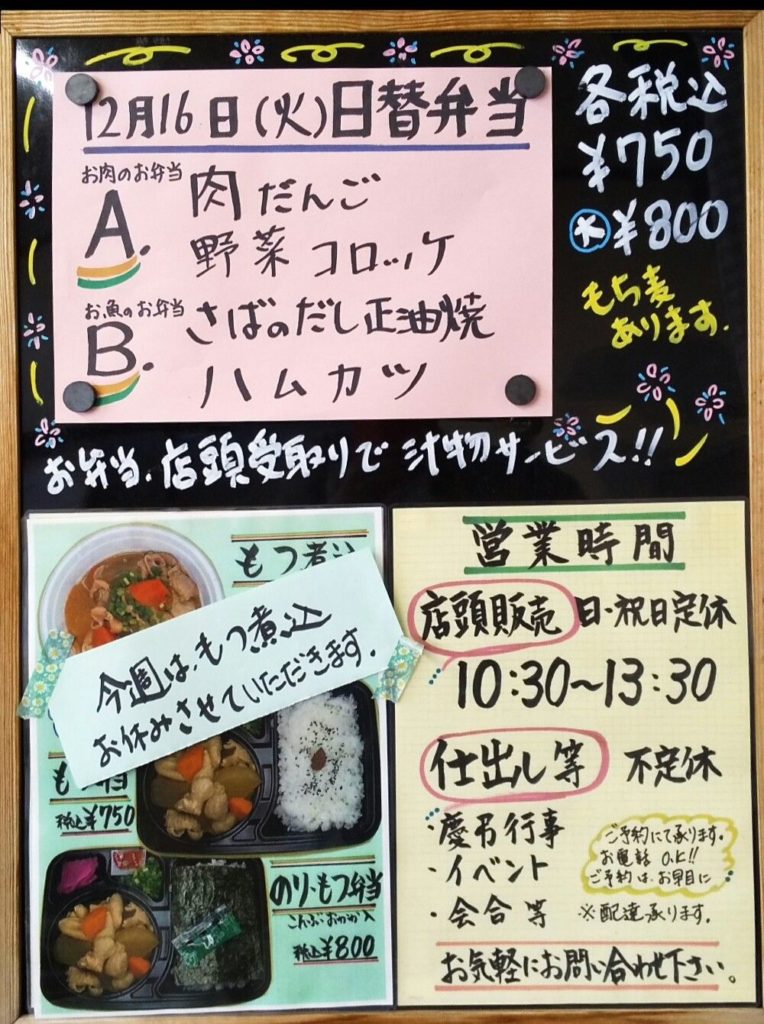 12月16日(火)日替弁当
お肉のお弁当
A.
肉だんご
野菜コロッケ
お魚のお弁当
B.
さばのだし正油焼
ハムカツ
各税込
¥750
大 ¥800
もち麦
あります.
お弁当、店頭受取りで汁物サービス!!
もつ煮込
今週は、もつ煮込
お休みさせていただきます.
税込¥750
のり・もつ弁当
こんぶおかか入
税込¥800
営業時間
店頭販売 日・祝日定休
10:30~13:30
仕出し等 不定休
・慶弔行事
・イベント
・会合等
ご予約にて承ります.
お電話 O.K!!
ご予約は、お早目に
※配達承ります.
お気軽にお問い合わせ下さい。